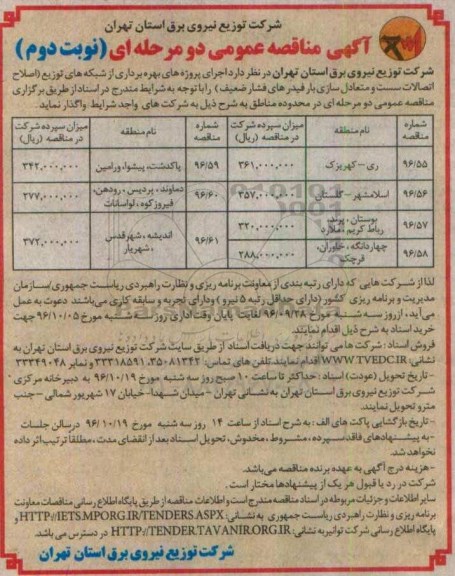 شرکت توزیع نیروی برق استان تهران
آگهی مناقصه عمومی دو مرحله ای (نوبت دوم)
شرکت توزیع نیروی برق استان تهران در نظر دارد اجرای پروژه های بهره برداری از شبکه های توزیع (اصلاح
اتصالات سست و متعادل سازی بار فیدر های فشار ضعیف) را با توجه به شرایط مندرج در اسناد از طریق برگزاری
مناقصه عمومی دو مرحله ای در محدوده مناطق به شرح ذیل به شرکت های واجد شرایط واگذار نماید.
شماره مناقصه نام منطقه میزان سپرده شرکت در مناقصه (ریال) شماره مناقصه نام منطقه میزان سپرده شرکت در مناقصه (ریال)
۹۶/۵۵ ری - کهریزک ۳۶۱,۰۰۰,۰۰۰ ۹۶/۵۹ پاکدشت، پیشوا، ورامین ۳۴۲,۰۰۰,۰۰۰
۹۶/۵۶ اسلامشهر - گلستان ۲۵۷,۰۰۰,۰۰۰ ۹۶/۶۰ دماوند، پردیس، رودهن، فیروزکوه، لواسانات ۲۷۷,۰۰۰,۰۰۰
۹۶/۵۷ بوستان، پرند، رباط کریم، ملارد ۳۲۰,۰۰۰,۰۰۰ ۹۶/۶۱ اندیشه، شهرقدس، شهریار ۳۷۲,۰۰۰,۰۰۰
۹۶/۵۸ چهاردانگه، خاوران، قرچک ۲۸۸,۰۰۰,۰۰۰
لذا از شرکت هایی که دارای رتبه بندی از معاونت برنامه ریزی و نظارت راهبردی ریاست جمهوری/سازمان
مدیریت و برنامه ریزی کشور (دارای حداقل رتبه ۵ نیرو) و دارای تجربه و سابقه کاری می باشند دعوت به عمل
می آید، از روز سه شنبه مورخ ۹۶/۰۹/۲۸ لغایت پایان وقت اداری روز سه شنبه مورخ ۹۶/۱۰/۰۵ جهت
خرید اسناد به شرح ذیل اقدام نمایند.
فروش اسناد: شرکت ها می توانند جهت دریافت اسناد از طریق سایت شرکت توزیع نیروی برق استان تهران به
نشانی: WWW.TVEDC.IR اقدام نمایند. تلفن های تماس: ۳۵۰۸۱۳۴۲ و ۳۳۳۱۸۵۹۱ و نمابر ۳۳۳۴۹۰۴۸
-تاریخ تحویل (عودت) اسناد: حداکثر تا ساعت ۱۰ صبح روز سه شنبه مورخ ۹۶/۱۰/۱۹ به دبیرخانه مرکزی -
شرکت توزیع نیروی برق استان تهران به نشانی تهران - میدان شهدا- خیابان ۱۷ شهریور شمالی - جنب
مترو تحویل نمایند.
-تاریخ بازگشایی پاکت های الف: به شرح اسناد از ساعت ۱۴ روز سه شنبه مورخ ۹۶/۱۰/۱۹ در سالن جلسات
-به پیشنهادهای فاقد سپرده، مشروط، مخدوش، تحویل اسناد بعد از انقضای مدت، مطلقا ترتیب اثر داده
نخواهد شد.
-هزینه درج آگهی به عهده برنده مناقصه می باشد.
شرکت در رد یا قبول هر یک از پیشنهادها مختار است.
سایر اطلاعات و جزئیات مربوطه در اسناد مناقصه مندرج است و اطلاعات مناقصه از طریق پایگاه اطلاع رسانی مناقصات معاونت
برنامه ریزی و نظارت راهبردی ریاست جمهوری به نشانی: HTTP://IETS.MPORG.IR/TENDERS.ASPX و
پایگاه اطلاع رسانی شرکت توانیر به نشانی: HTTP://TENDER.TAVANIR.ORG.IR در دسترس می باشد.
شرکت توزیع نیروی برق استان تهران